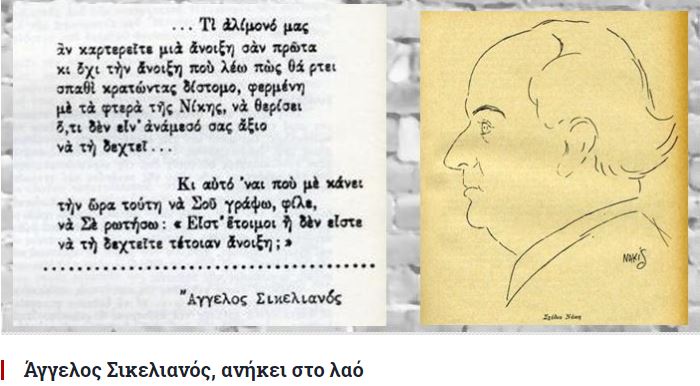 ... Τὶ ἀλίμονό μας
ἂν καρτερεῖτε μιὰ ἄνοιξη σὰν πρῶτα
κι ὄχι τὴν ἄνοιξη ποὺ λέω πὼς θά ρτει
σπαθὶ κρατώντας δίστομο, φερμένη
μὲ τὰ φτερὰ τῆς Νίκης, νὰ θερίσει
ὅ,τι δὲν εἶν' ἀνάμεσό σας ἄξιο
νὰ τὴ δεχτεῖ ...
Κι αὐτὸ 'ναι ποὺ μὲ κάνει
τὴν ὥρα τούτη νὰ Σοῦ γράψω, φίλε,
νὰ Σὲ ρωτήσω : « Εἶστ' ἕτοιμοι ἢ δὲν εἶστε
νὰ τὴ δεχτεῖτε τέτοιαν ἄνοιξη ; »
Ἄγγελος Σικελιανός
ΝΑΚΗΣ
Σχέδιο Νάκη
Άγγελος Σικελιανός, ανήκει στο λαό